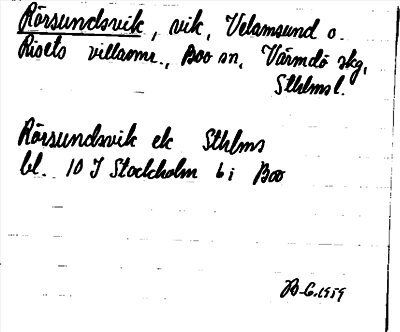 Rörsundsvik, vik, Velamsund o.
Risets villaomr., Boo sn, Värmdö skg,
Sthlms l.
Rörsundsvik ek Sthlms
bl. 10 I Stockholm 6 i Boo
B-G. 1959